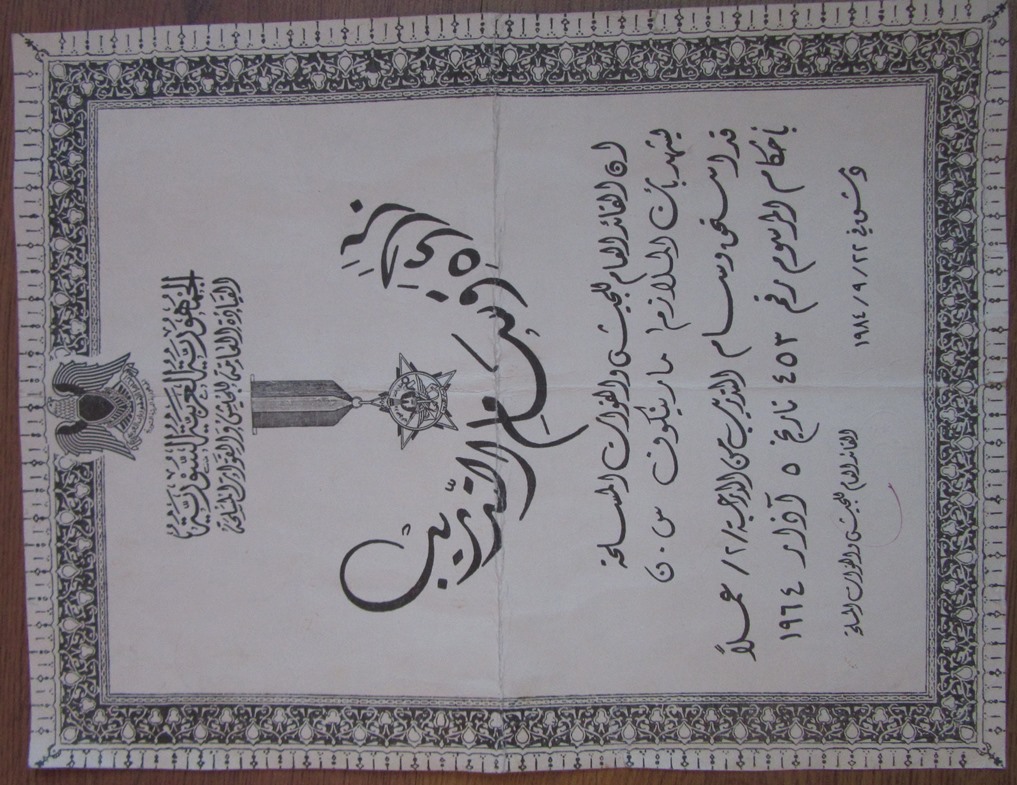 الجمهورية العربية السورية
القيادة العامة للجيش والقوات المسلحة
براءة
وسام التدريب
ان القائد العام للجيش والقوات المسلحة
يشهد بأن الملازم مارينكوف س.ن
قد استحق وسام التدريب من الدرجة /٢/ عملاً
بأحكام المرسوم رقم ٤٥٣ تاريخ ٥ آذار ١٩٦٤
دمشق في ٢٢/٩/١٩٨٤
القائد العام للجيش والقوات المسلحة